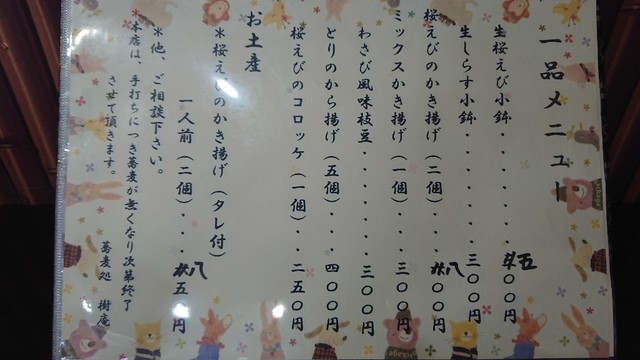 一品メニュー
生桜えび小鉢・・・・・・・五〇〇円
生しらす小鉢・・・・・・・三〇〇円
桜えびのかき揚げ（二個）・・・八〇〇円
ミックスかき揚げ（一個）・・・三〇〇円
わさび風味枝豆・・・・・・三〇〇円
とりのから揚げ（五個）・・・四〇〇円
桜えびのコロッケ（一個）・・・二五〇円
お土産
＊桜えびのかき揚げ（タレ付）
一人前（二個）・・・八五〇円
＊他、ご相談下さい。
＊本店は、手打ちにつき蕎麦が無くなり次第終了
させて頂きます。
蕎麦処 樹庵